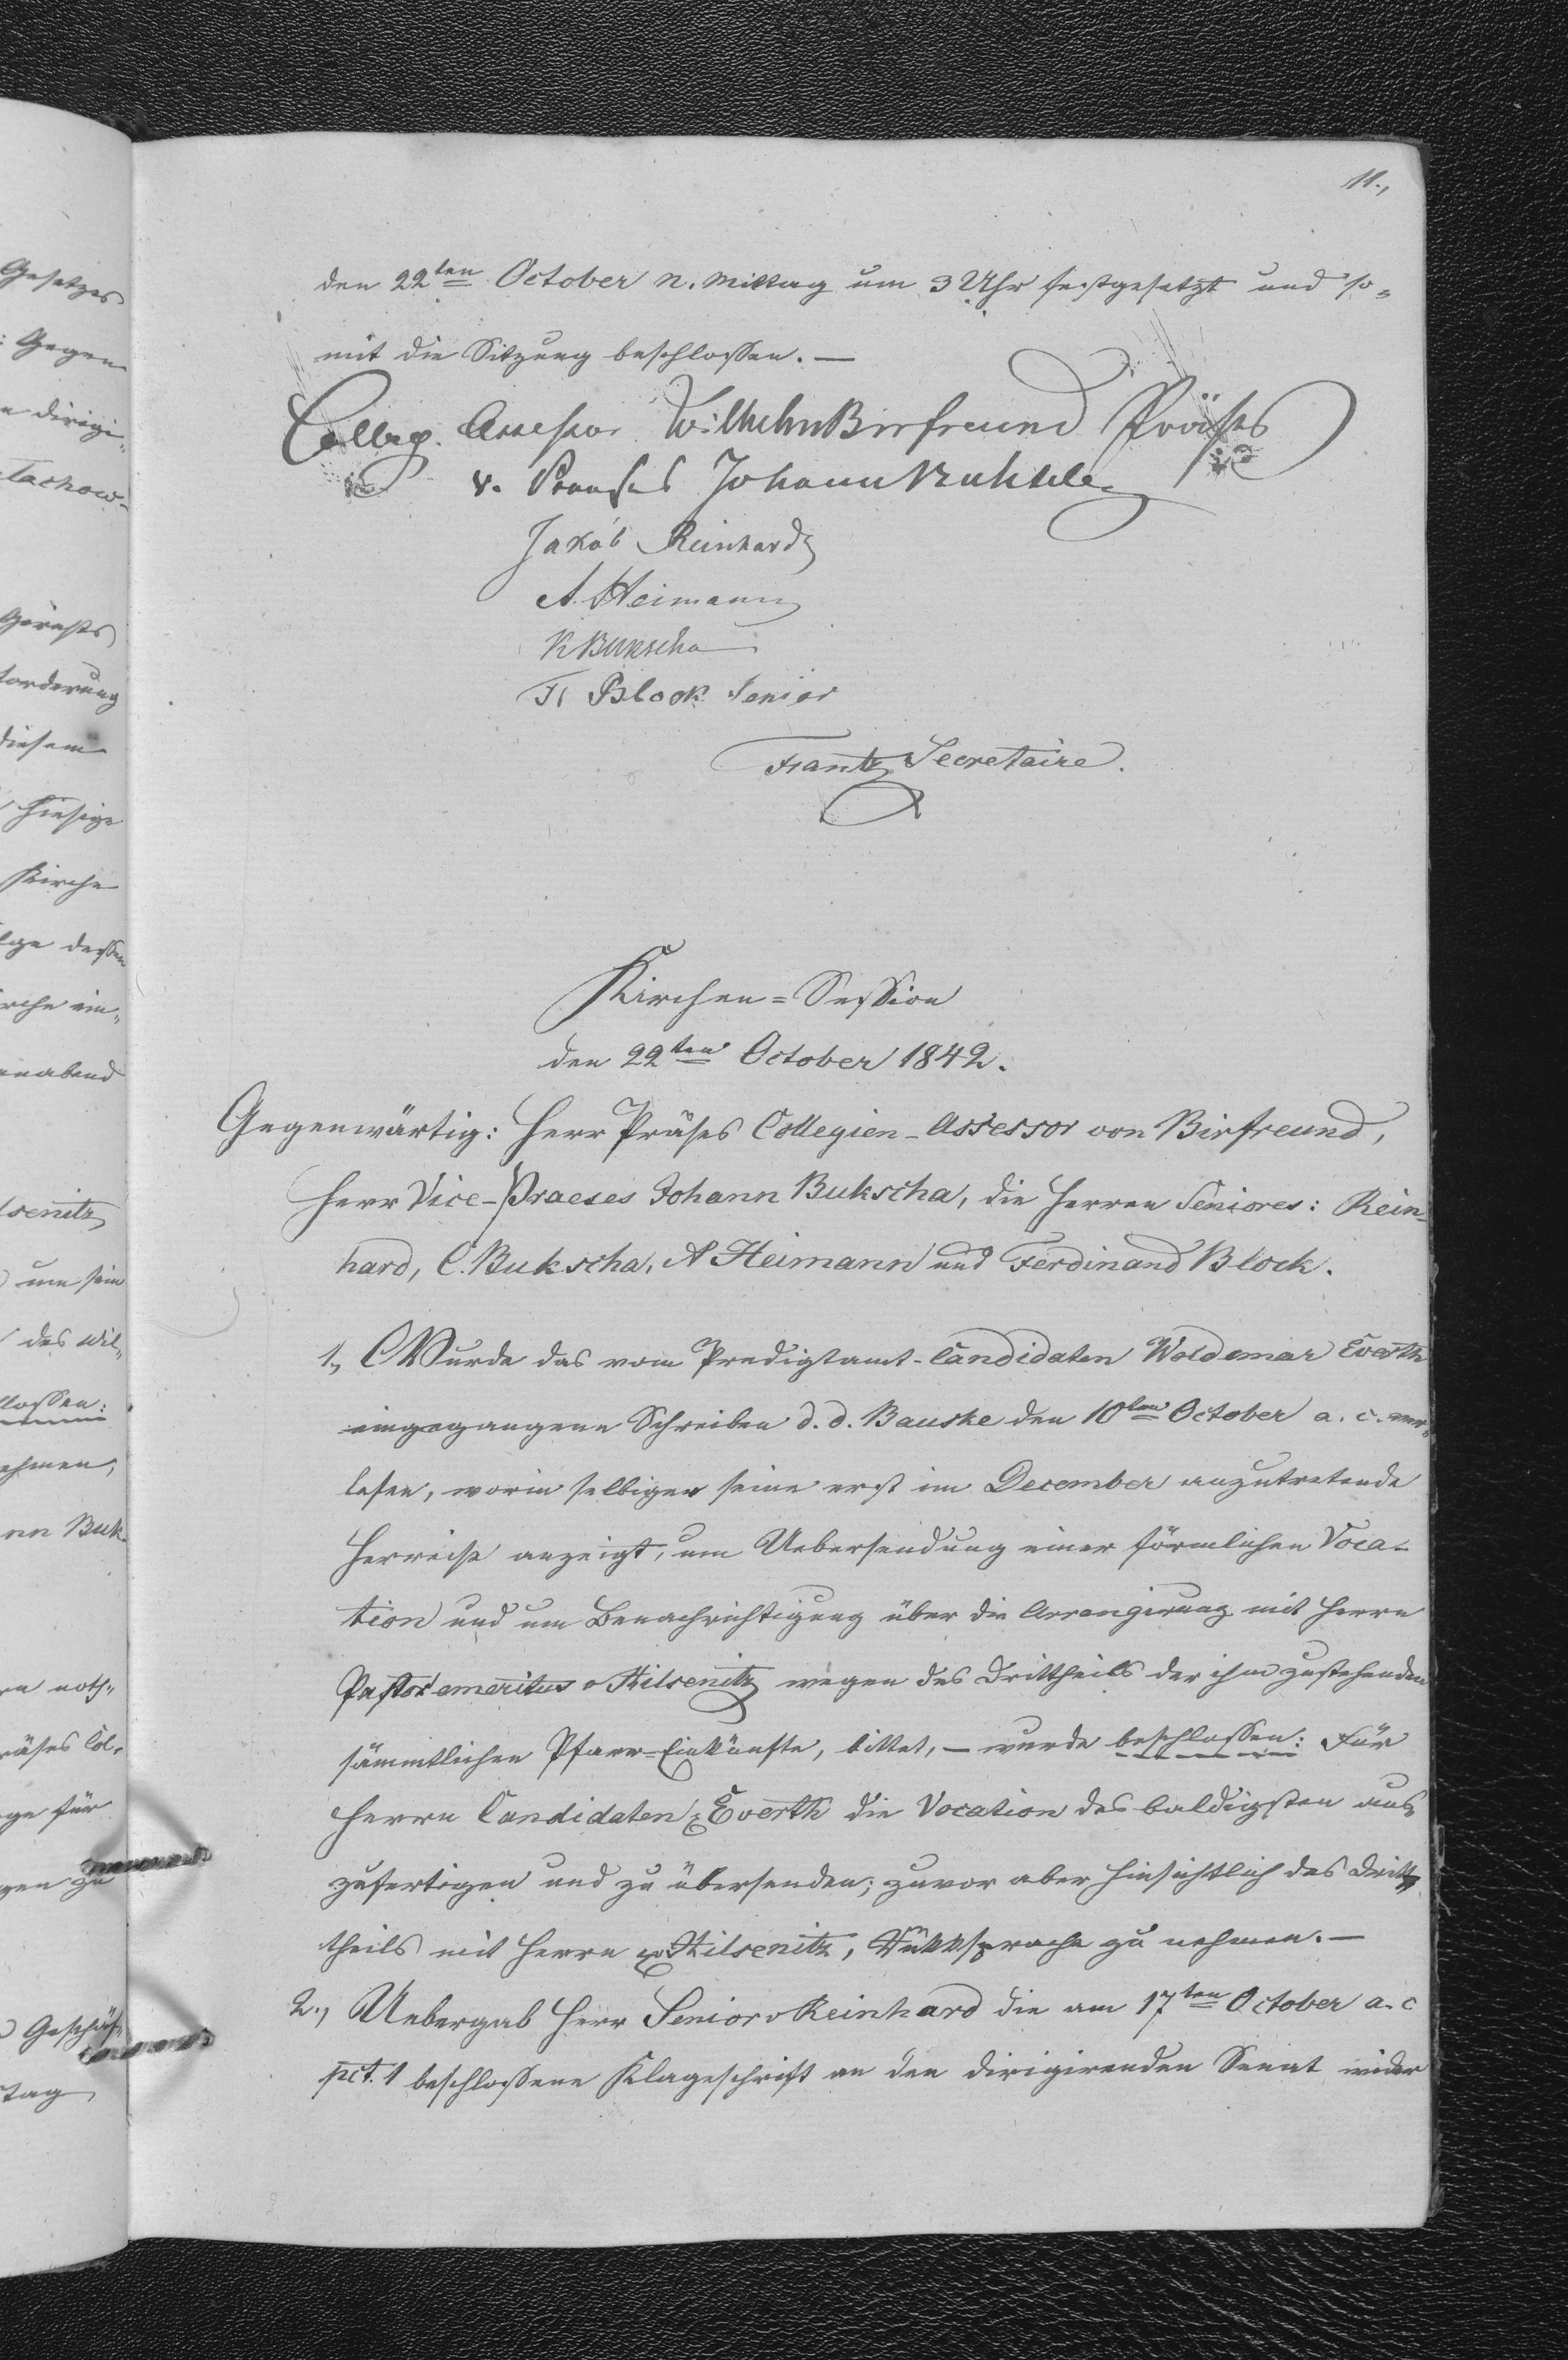 11.,
den 22ten October n. Mittag um 3 Uhr festgesetzt und so-
mit die Sitzung beschlossen. —
Colleg. Assessor Wilhelm Birfreund Präses
v. Praeses Johann
Jakob Reinhard
A. Heimann
K Bukscha
F. Block Senior
Frantz Secretaire.
Kirchen-Session
den 22ten October 1842.
Gegenwärtig: Herr Präses Collegien-Assessor von Birfreund,
Herr Vice-Praeses Johann Bukscha, die Herren Seniores: Rein-
hard, C. Bukscha, A Heimann und Ferdinand Block.
1., Wurde das vom Predigtamt-Candidaten Woldemar Everth
eingegangene Schreiben d. d. Bauske den 10ten October a. c. ver-
lesen, worin selbiger seine erst im December anzutretende
Herreise anzeigt, um Uebersendung einer förmlichen Voca-
tion und um Benachrichtigung über die Arrangirung mit Herrn
Pastor emeritus v Hilsenitz wegen des Drittheils der ihm zustehenden
sämmtlichen Pfarr-Einkünfte, bittet, — wurde beschlossen: Für
Herrn Candidaten Everth die Vocation des baldigsten aus-
zufertigen und zu übersenden; zuvor aber hinsichtlich des Dritt-
theils mit Herrn v Hilsenitz, Rükksprache zu nehmen. —
2., Uebergab Herr Senior Reinhard die am 17ten October a. c
pct. 1 beschlossene Klageschrift an den dirigirenden Senat wider
Gesetzes
Gegen
dirigi-
Tachow-
Gerichts
forderung
diesem
hiesige
Kirche
dessen
ein-
senitz
um sein
des Wil-
nn Buk-
noth-
räses Col-
für
zu
Geschäf-
tag